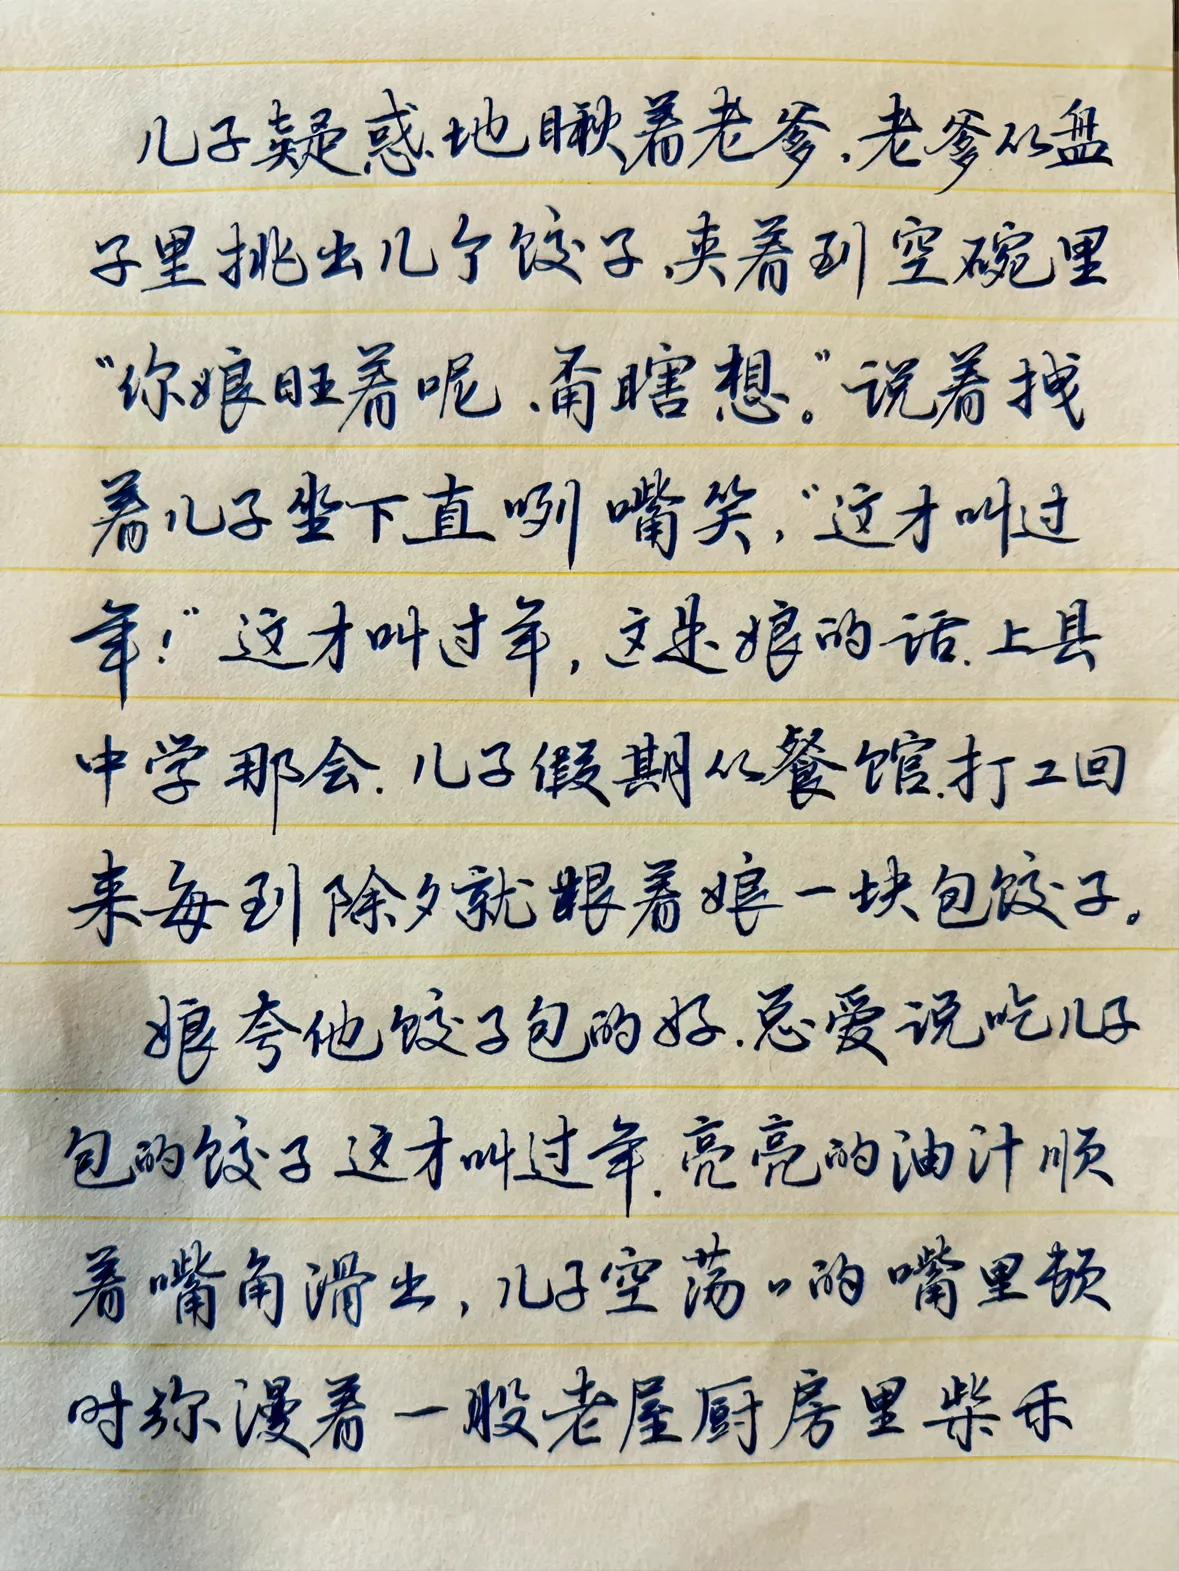 儿子疑惑地瞅着老爹，老爹从盘
子里挑出几个饺子，夹着到空碗里
“你娘旺着呢，甭瞎想。”说着拽
着儿子坐下直咧嘴笑，“这才叫过
年！”这才叫过年，这是娘的话，上县
中学那会，儿子假期从餐馆打工回
来每到除夕就跟着娘一块包饺子。
娘夸他饺子包的好，总爱说吃儿子
包的饺子这才叫过年，亮亮的油汁顺
着嘴角滑出，儿子空荡荡的嘴里顿
时弥漫着一股老屋厨房里柴禾